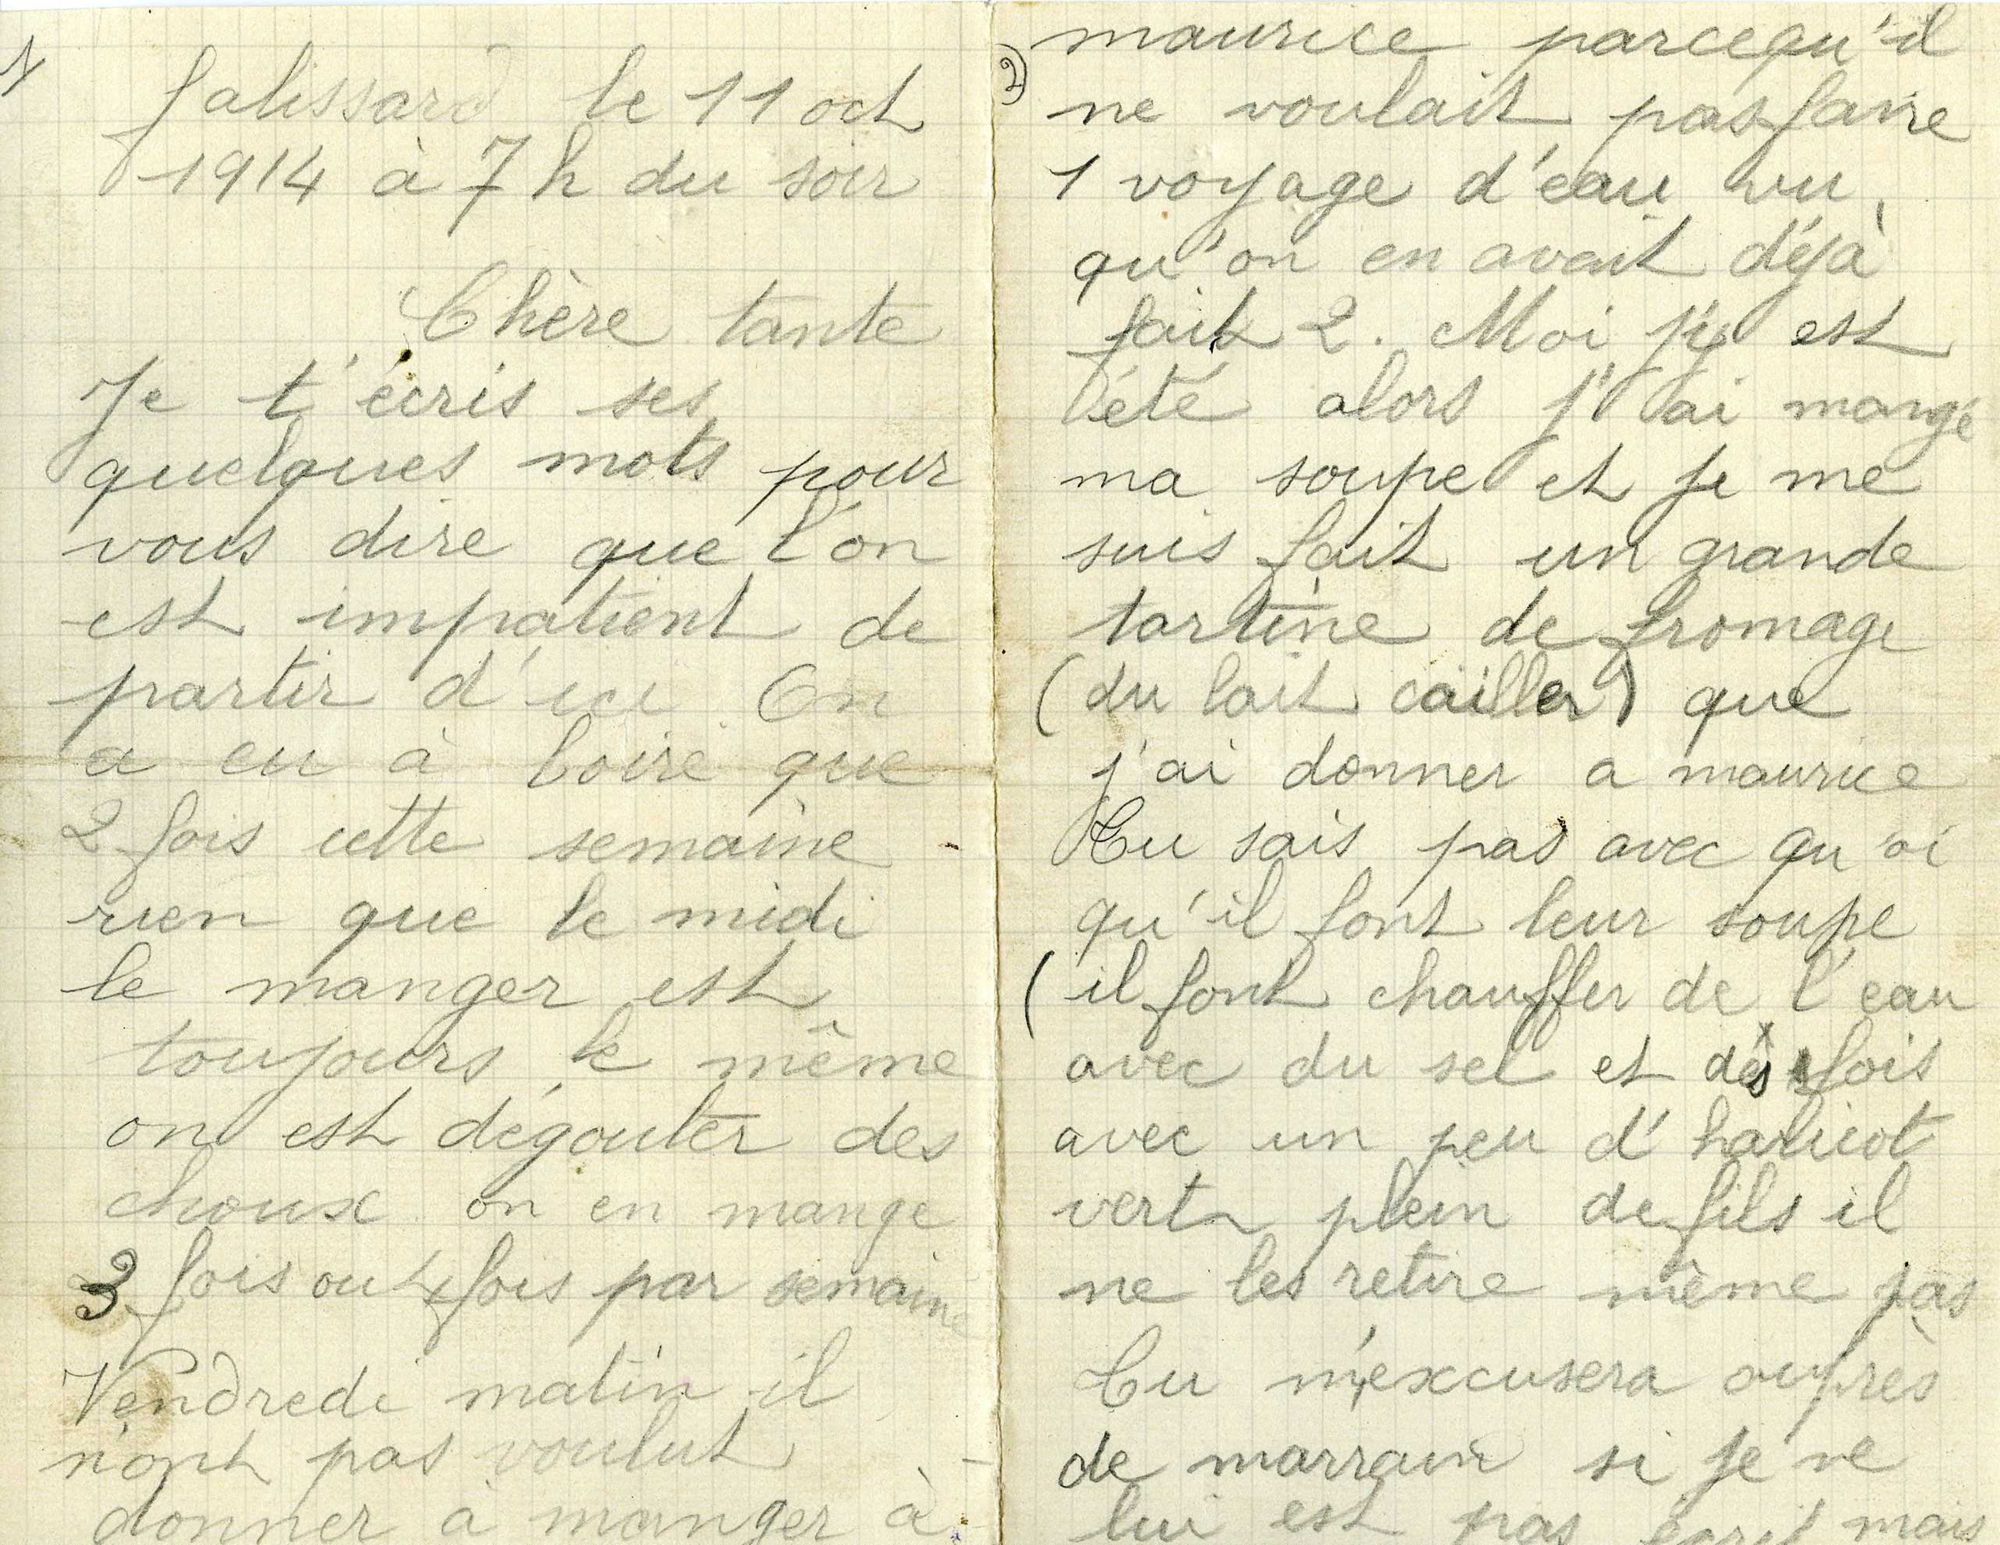 1/
Jalissard le 11 oct
1914 à 7 h du soir
Chère tante
Je t'écris ses
quelques mots pour
vous dire que l'on
est impatient de
partir d'ici On
a eu à boire que
2 fois cette semaine
rien que le midi
le manger est
toujours le même
on est dégouter des
choux on en mange
3 fois ou 4 fois par semaine
Vendredi matin il
n'ont pas voulut
donner à manger à
2)
maurice parcequ'il
ne voulait pas faire
1 voyage d'eau vu
qu'on en avait déjà
fait 2. Moi j'y est
été alors j'ai mangé
ma soupe et je me
suis fait un grande
tartine de fromage
(du lait cailler) que
j'ai donner a maurice
Tu sais pas avec qu'oi
qu'il font leur soupe
(il font chauffer de l'eau
avec du sel et des fois
avec un peu d'haricot
vert plein de fils il
ne les retire même pas
Tu m'excusera auprès
de marraine si je ne
lui est pas écrit mais